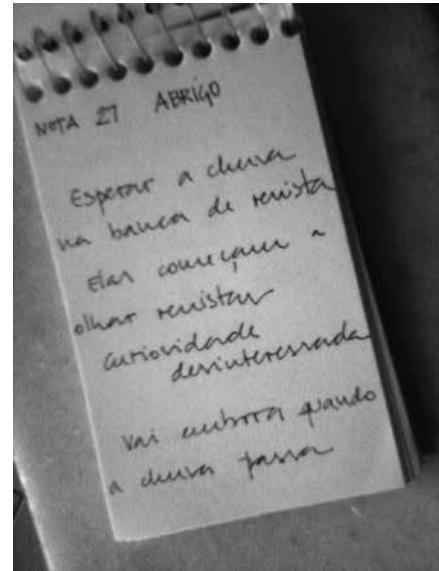 NOTA 27 ABRIGO
Esperar a chuva
na banca de revista
Elas começam a
olhar revistas
curiosidade
desinteressada
Vai embora quando
a chuva passa